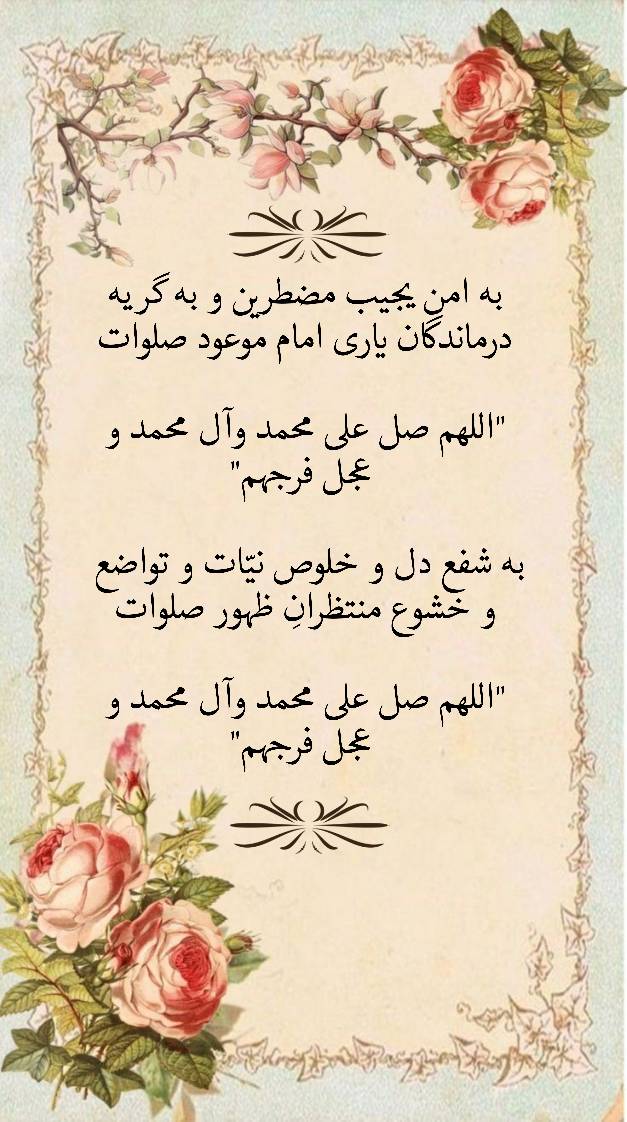 به امن یجیب مضطرین و به گریه
درماندگان یاری امام موعود صلوات
"اللهم صل علی محمد وآل محمد و
عجل فرجهم"
به شفع دل و خلوص نیّات و تواضع
و خشوع منتظرانِ ظهور صلوات
"اللهم صل علی محمد وآل محمد و
عجل فرجهم"